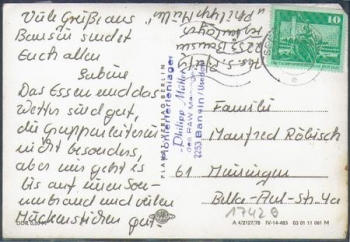 Viele Grüße aus
Bansin sendet
Euch allen
Sabine
Das Essen und das
Wetter sind gut,
die Gruppenleiterin
nicht besonders,
aber mir geht es
bis auf einen Son-
nenbrand und vielen
Mückenstichen gut
"Philipp Müller"
2253 Bansin
"Philipp Müller"
des RAW
2253 Bansin/Usedom
PLANET-VERLAG BERLIN
10
Familie
Manfred Röbisch
61 Meiningen
17428
A 4/2127/78 IV-14-483 03 01 11 061 M